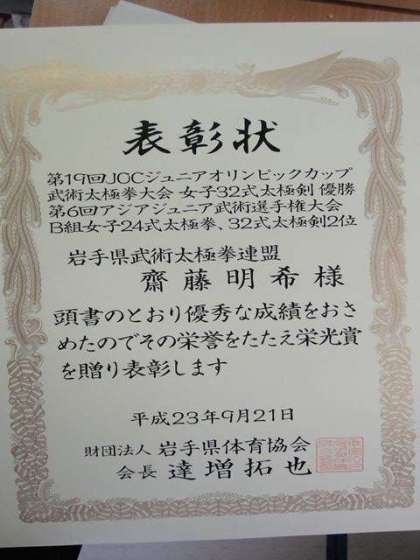 表彰状
第19回JOCジュニアオリンピックカップ
武術太極拳大会 女子32式太極剣 優勝
第6回アジアジュニア武術選手権大会
B組女子24式太極拳、32式太極剣2位
岩手県武術太極拳連盟
齋藤明希様
頭書のとおり優秀な成績をおさ
めたのでその栄誉をたたえ栄光賞
を贈り表彰します
平成23年9月21日
財団法人 岩手県体育協会
会長 達増拓也